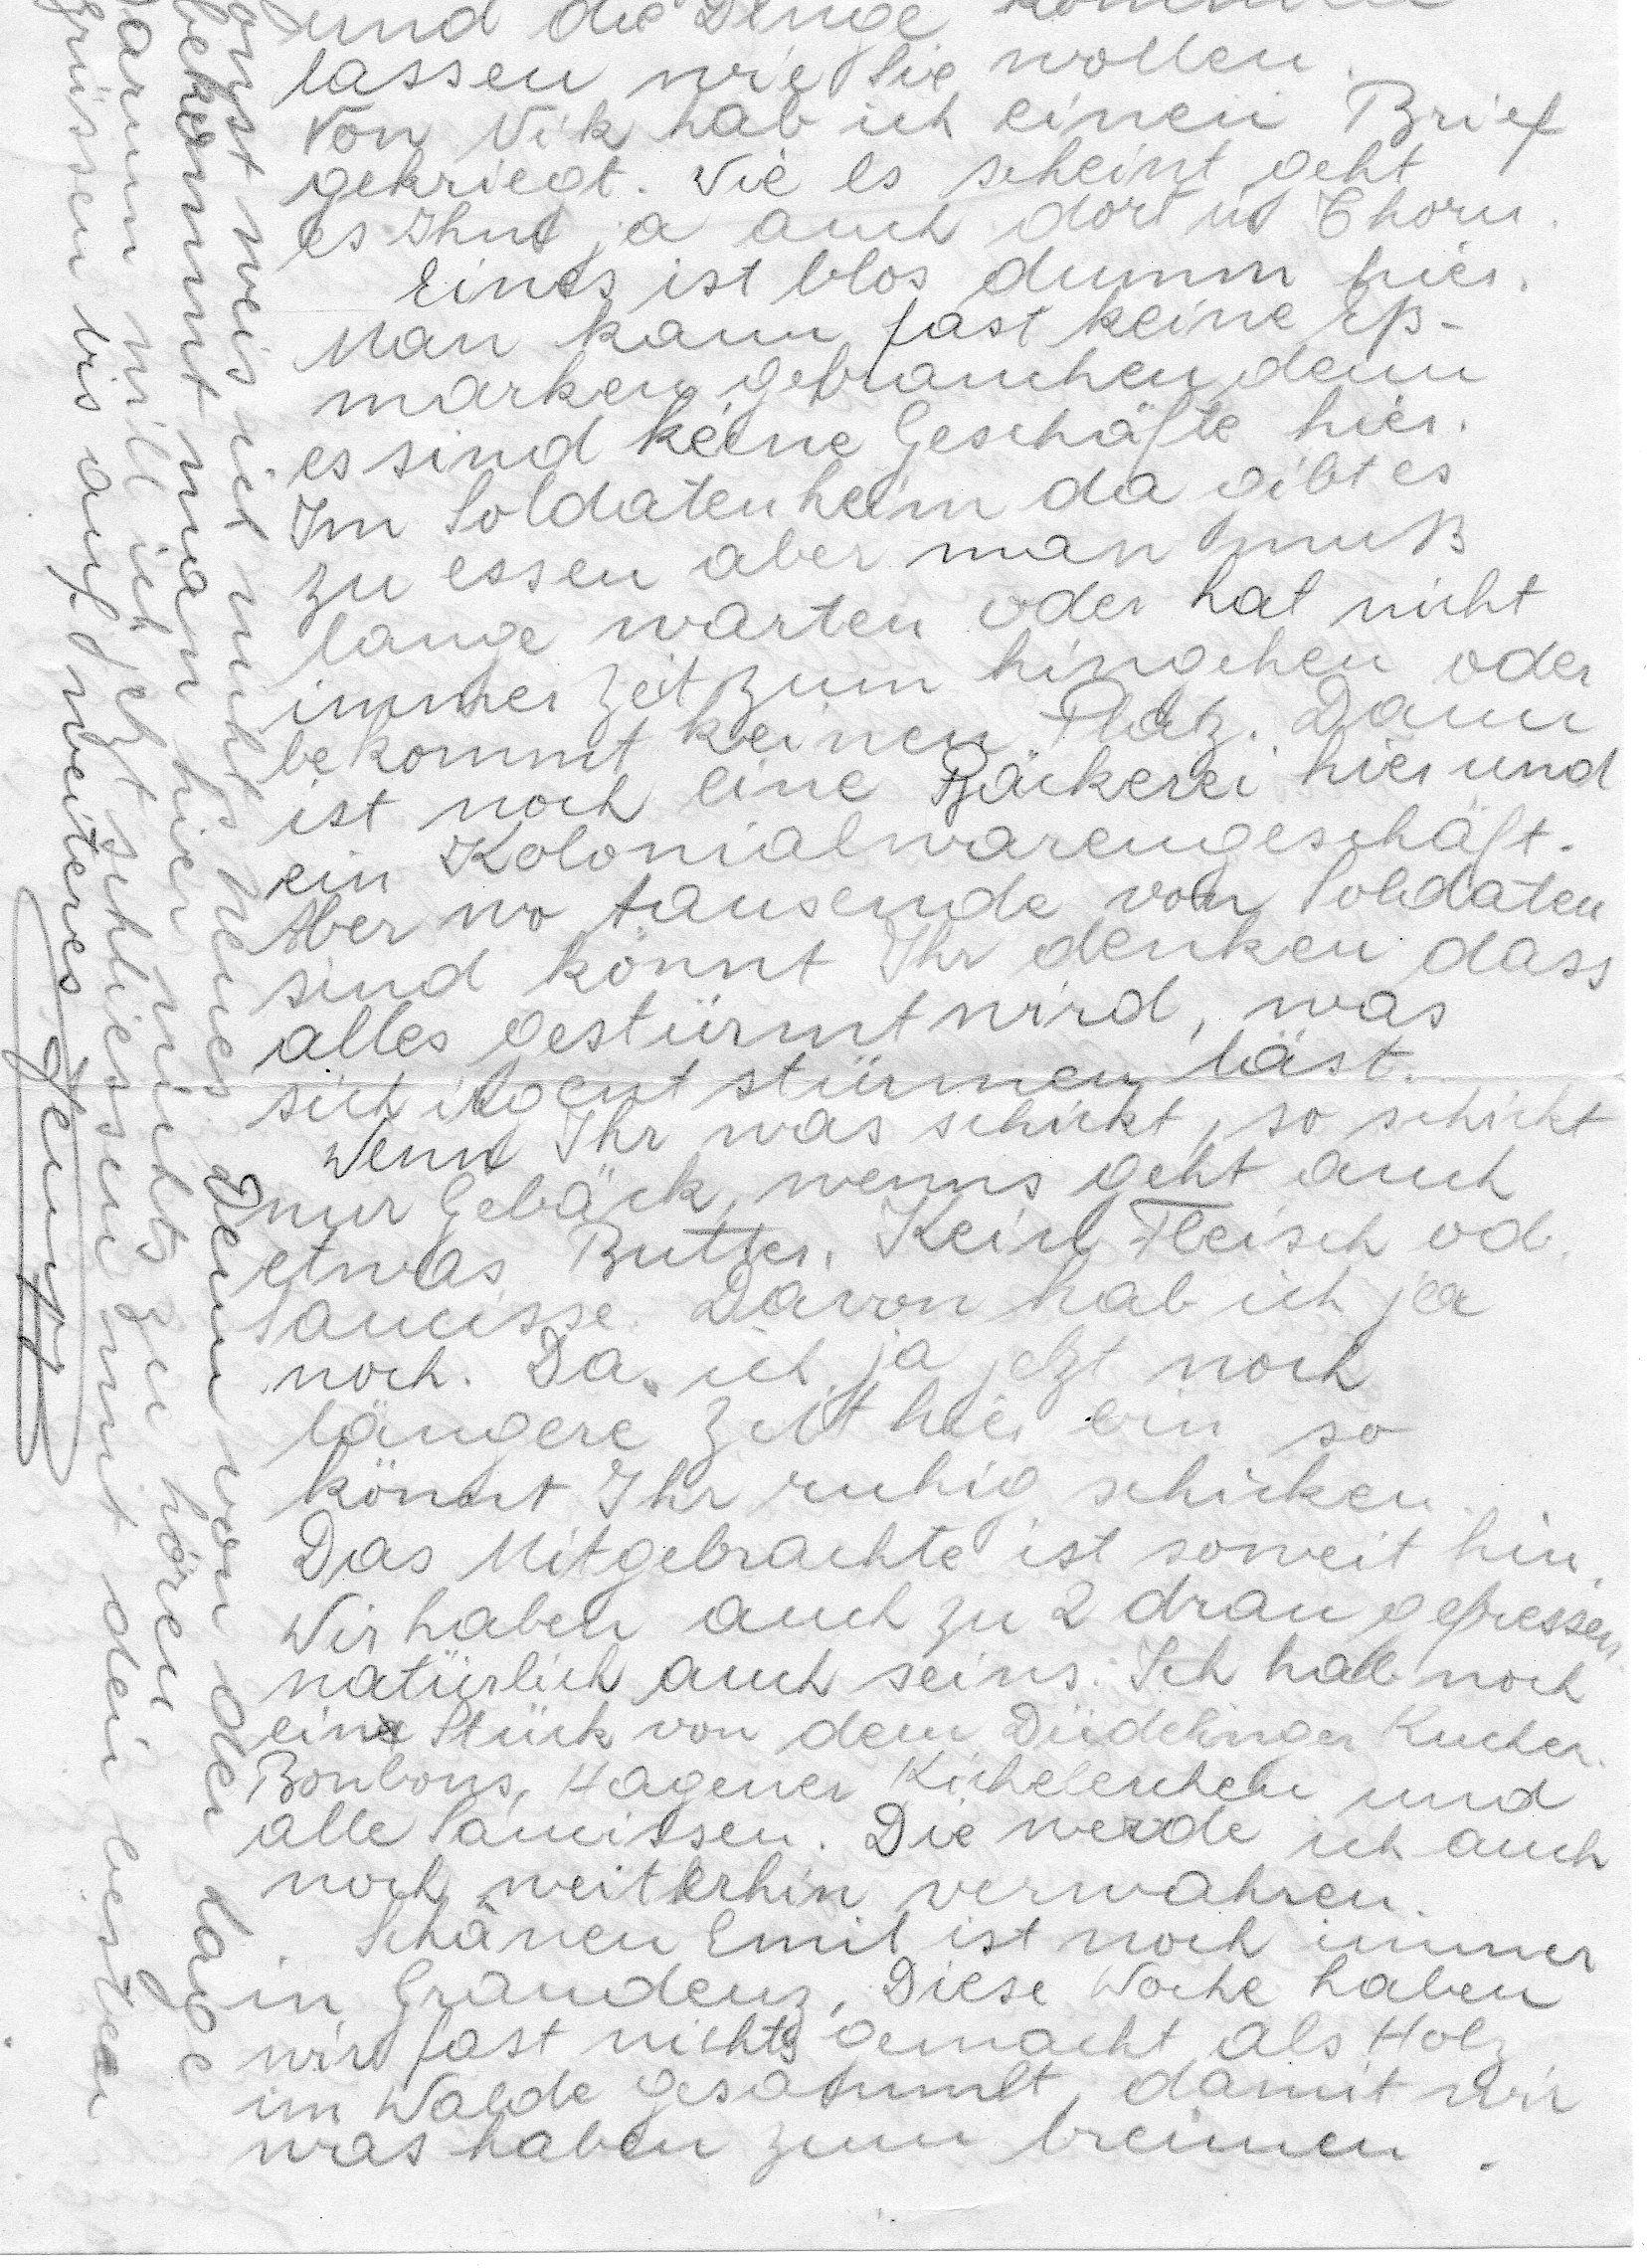 und die Dinge kommen
lassen wie Sie wollen.
Von Vik hab ich einen Brief
gekriegt. Wie es scheint geht
es Ihnt ja auch dort in Thorn.
Eines ist blos dumm hier.
Man kann fast keine Eß-
marken gebrauchen denn
es sind keine Geschäfte hier.
Im Soldatenheim da gibt es
zu essen aber man muß
lange warten oder hat nicht
immer Zeit zum hingehen oder
bekommt keinen Platz. Dann
ist noch eine Bäckerei hier und
ein Kolonialwarengeschäft.
Aber wo tausende von Soldaten
sind könnt Ihr denken dass
alles gestürmt wird, was
sich irgent stürmen läst.
Wenn Ihr was schickt, so schickt
nur Gebäck, wenns geht auch
etwas Butter. Kein Fleisch od.
Saucisse. Davon hab ich ja
noch. Da ich ja jetzt noch
längere Zeit hier bin so
könnt Ihr ruhig schicken.
Das Mitgebrachte ist soweit hin.
Wir haben auch zu 2 dran gefressen
natürlich auch seins. Ich hab noch
ein Stück von dem Düdelinger Kuchen.
Bonbons, Hagener Kichelercher und
alle Saucissen. Die werde ich auch
noch weiterhin verwahren.
Schänen Emil ist noch immer
in Graudenz. Diese Woche haben
wir fast nichts gemacht als Holz
im Walde gesammelt, damit wir
was haben zum brennen.
sonst weis ich nichts Neues denn von der Lage
bekommt man hier nichts zu hören
Darum will ich jetzt schliessen mit den besten
Grüssen bis auf weiteres Jeung